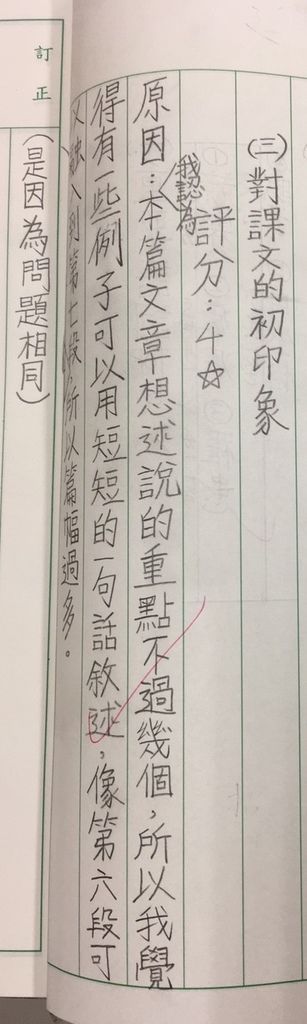 (三)對課文的初印象
評分:4☆
原因:我認為本篇文章想述說的重點不過幾個,所以我覺
得有一些例子可以用短短的一句話敘述,像第六段可
以融入到第七段,所以篇幅過多。
(是因為問題相同)
訂正